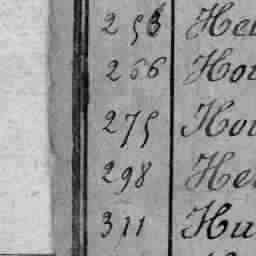 253 He
266 Hou
275 Hou
298 He
311 Hu